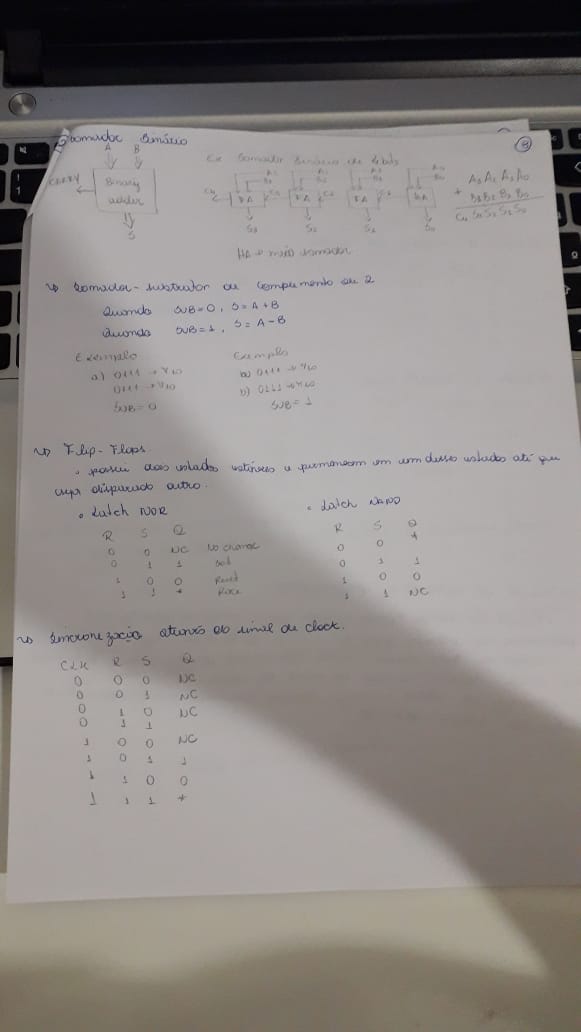 Somador Binário
9
A B
CARRY
Binary
adder
S
Ex Somador Binário de 4 bits
C4 FA FA FA HA
S3 S2 S1 S0
A3 A2 A1 A0
+ B3 B2 B1 B0
C4 S3 S2 S1 S0
HA → meio somador
↳ Somador-subtrator ou complemento de 2
Quando SUB=0, S=A+B
Quando SUB=1, S=A-B
Exemplo
a) 0111 → 710
0111 → 710
SUB=0
Exemplo
b) 0111 → 710
b) 0111 → 710
SUB=1
↳ Flip-Flops
• possui dois estados estáveis e permanecem em um desses estados até que
seja disparado outro.
• Latch NOR
R S Q
0 0 NC No change
0 1 1 Set
1 0 0 Reset
1 1 * Race
• Latch NAND
R S Q
0 0 *
0 1 1
1 0 0
1 1 NC
↳ Sincronização através do sinal de clock.
CLK R S Q
0 0 0 NC
0 0 1 NC
0 1 0 NC
0 1 1
1 0 0 NC
1 0 1 1
1 1 0 0
1 1 1 *